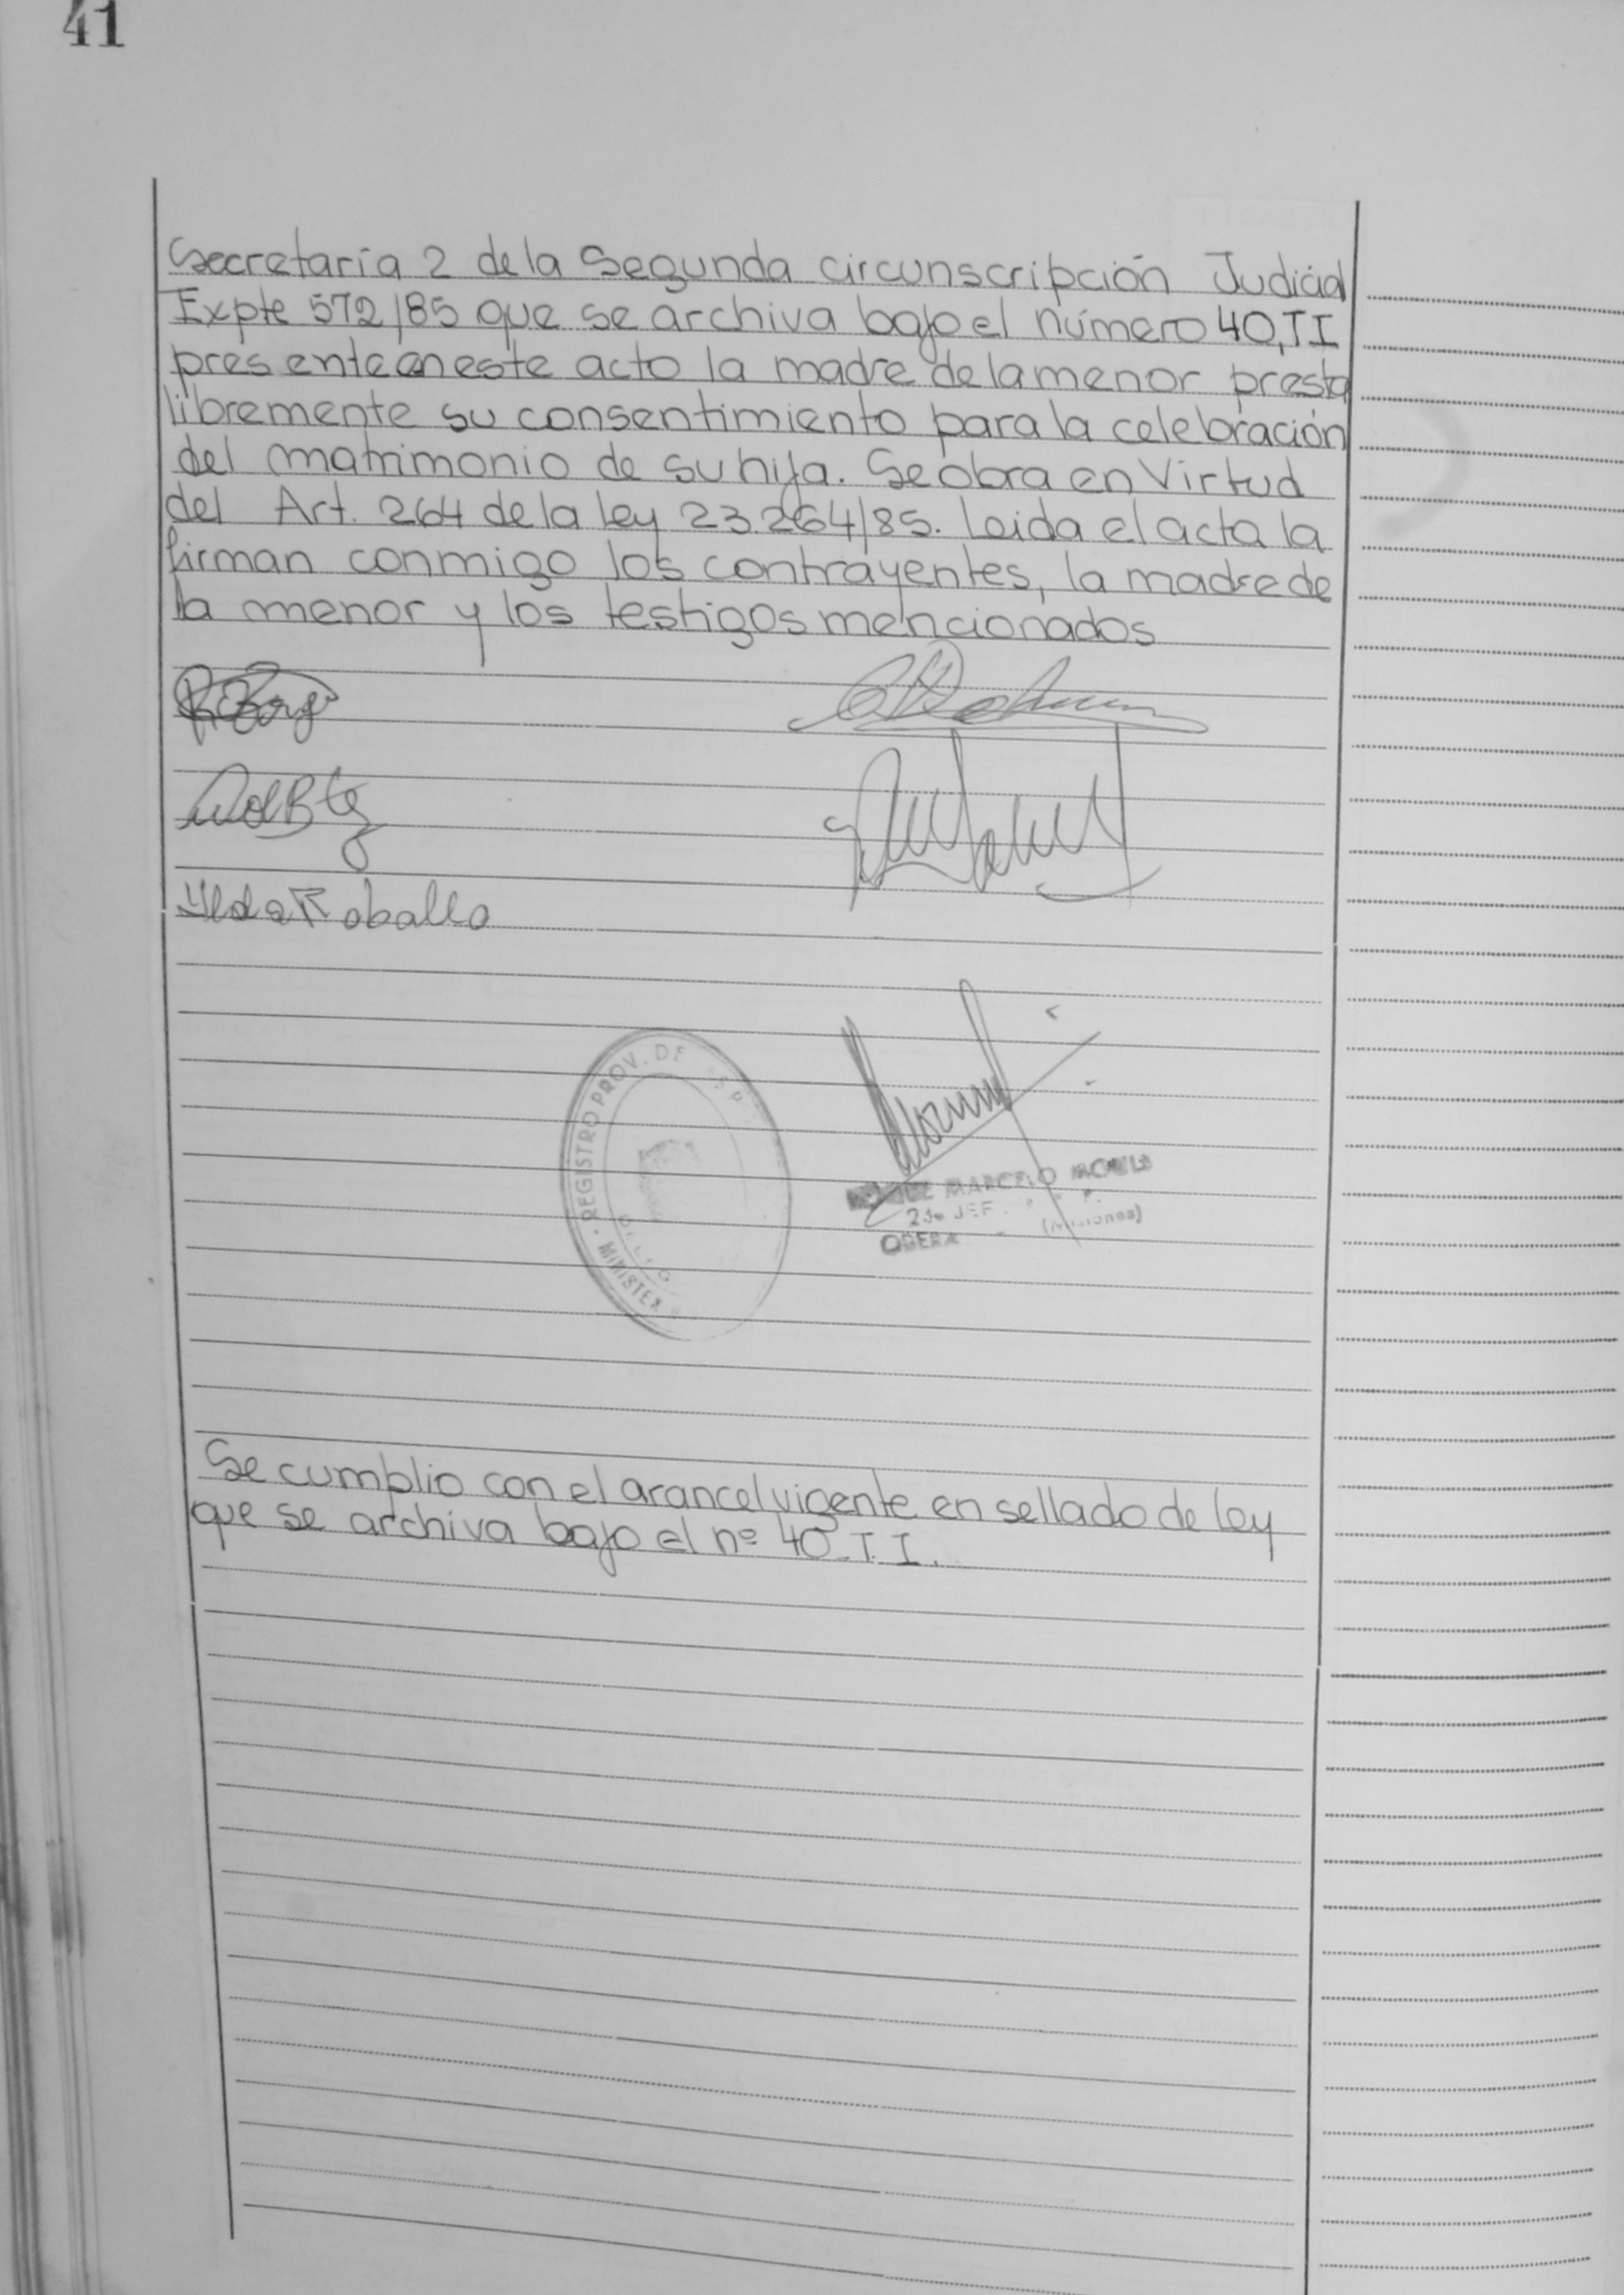 41
Secretaría 2 de la Segunda circunscripción Judicial
Expte 572/85 que se archiva bajo el número 40, T I
presente en este acto la madre de la menor presta
libremente su consentimiento para la celebración
del matrimonio de su hija. Se obra en Virtud
del Art. 264 de la ley 23.264/85. Leida el acta la
firman conmigo los contrayentes, la madre de
la menor y los testigos mencionados
Ilda Raballo
REGISTRO PROV. DE
MINISTER
MARCELO
JEF
OBERA (Misiones)
Se cumplio con el arancel vigente en sellado de ley
que se archiva bajo el nº 40 T. I.